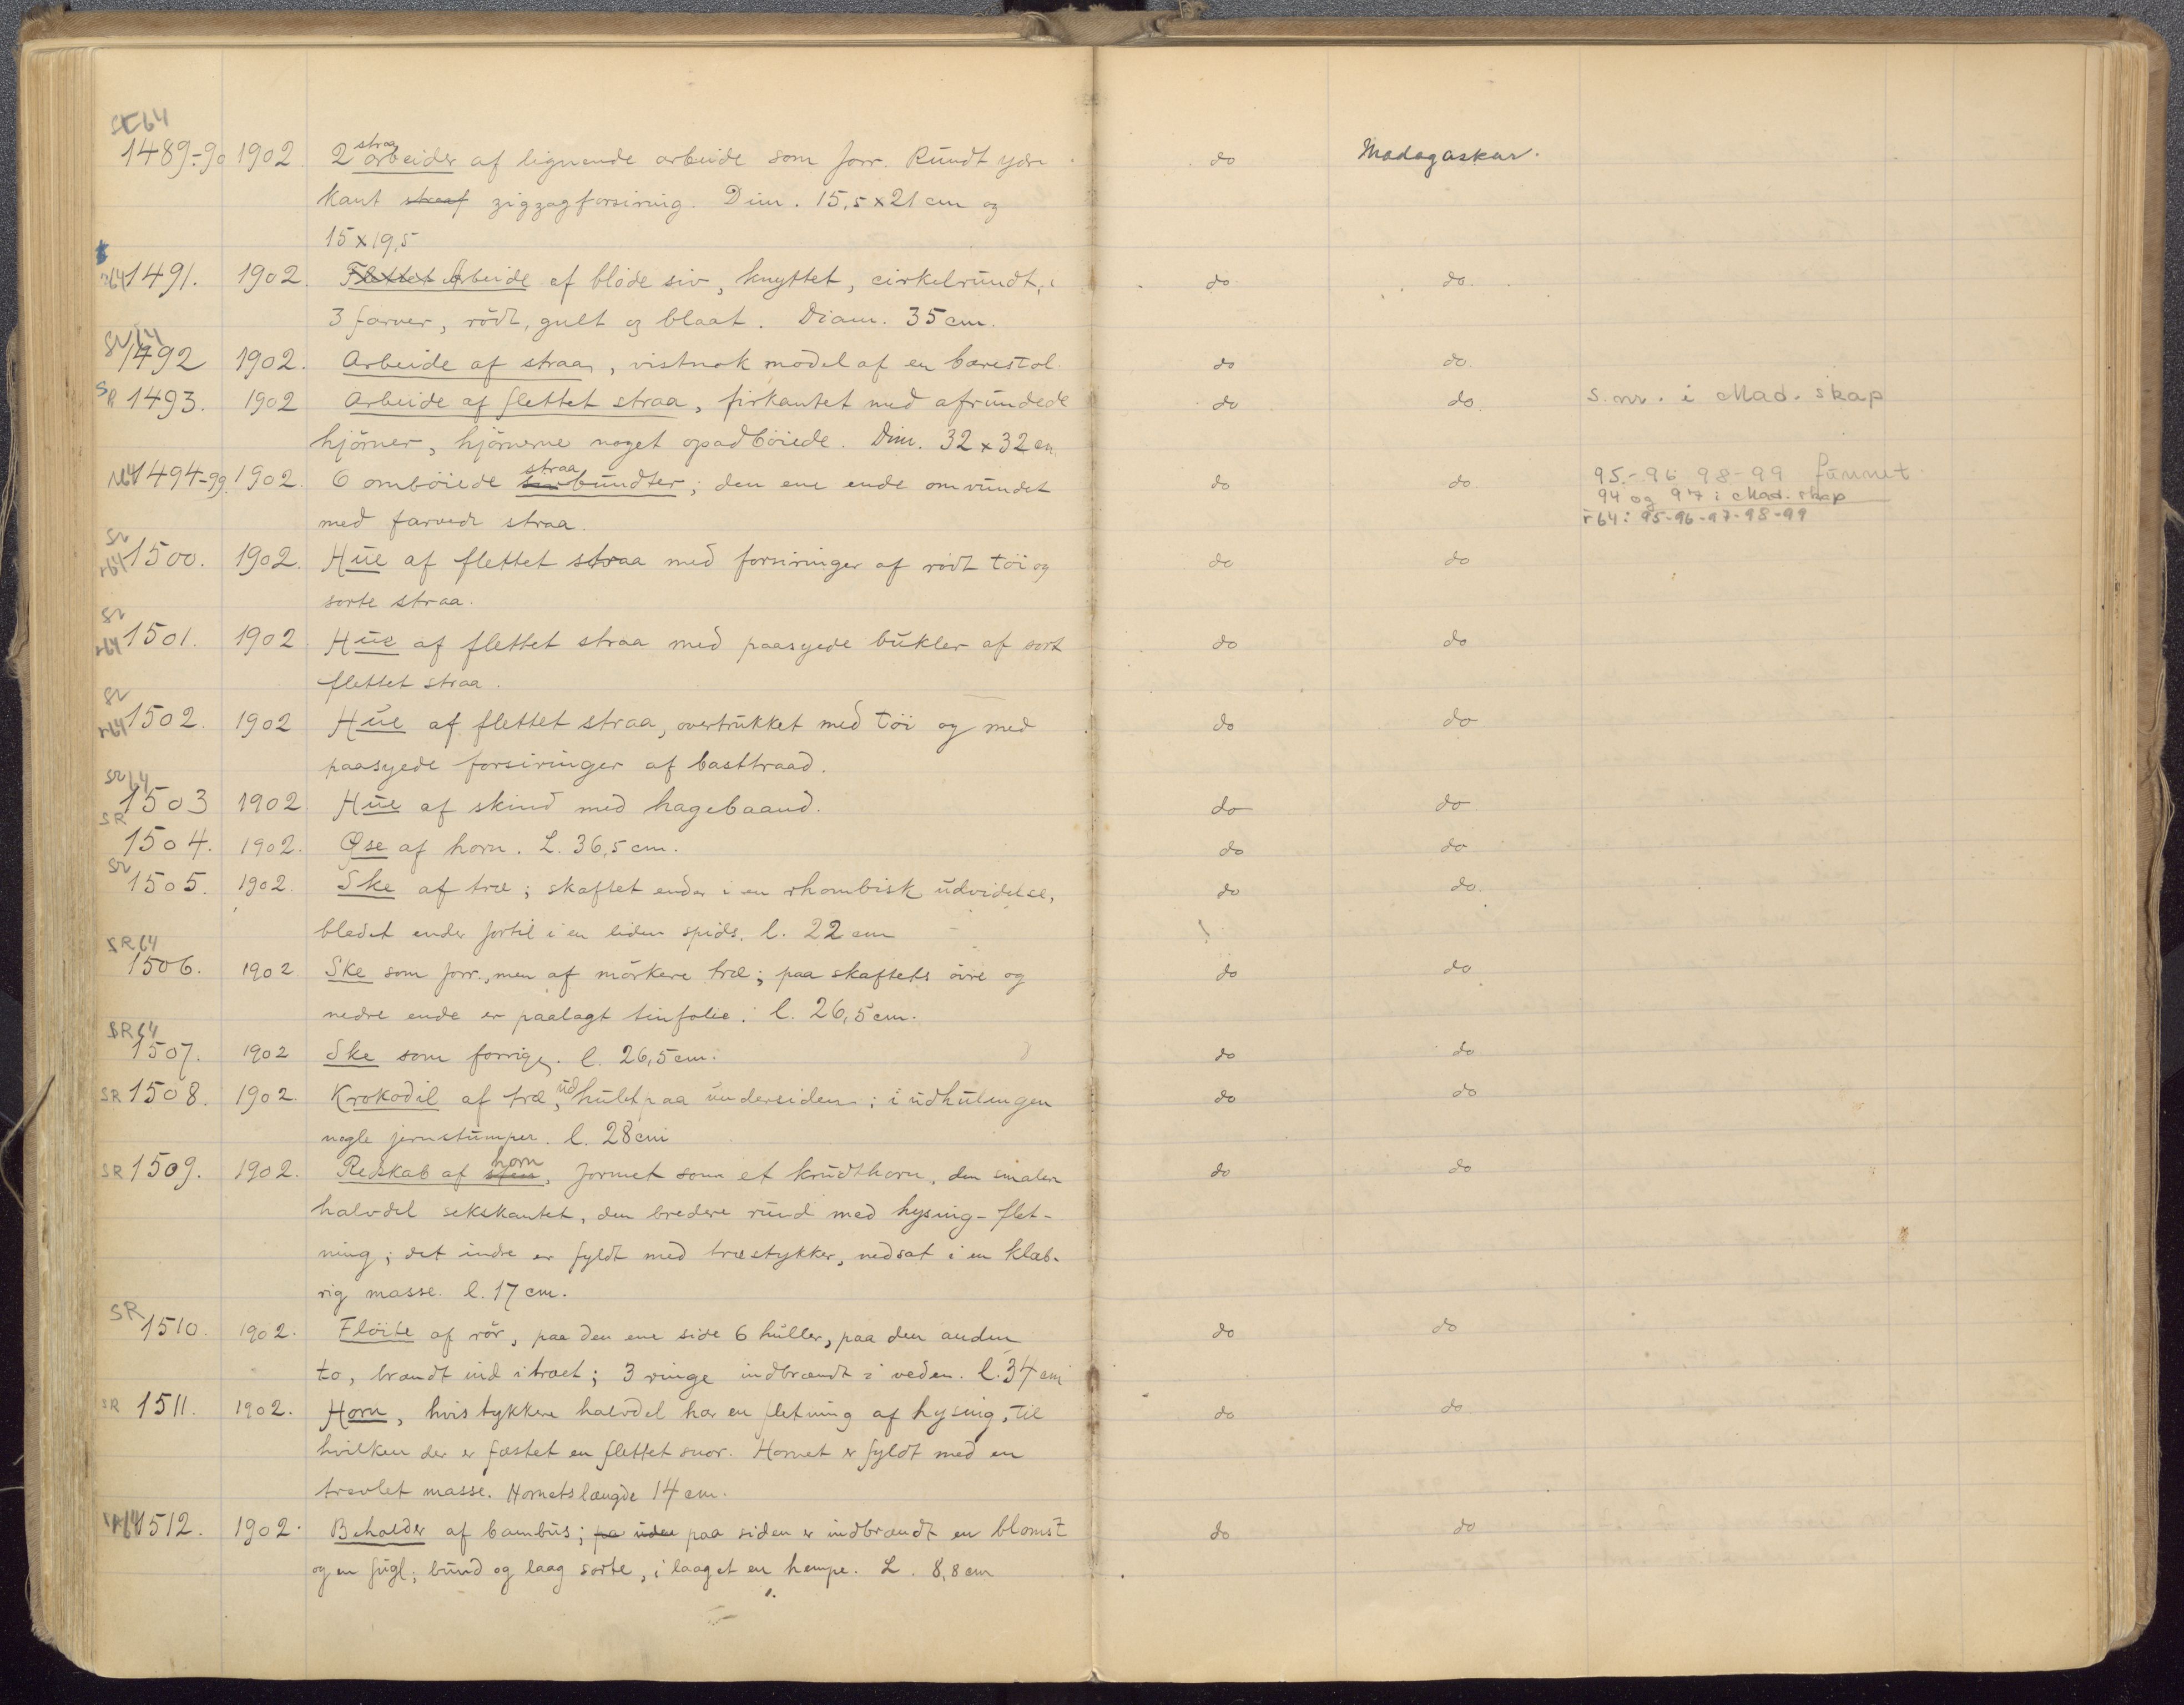 SR64
1489-90 1902. 2 straaarbeider af lignende arbeide som forr. Rundt ydre do Madagaskar.
kant straaf zigzagforsiring. Dim. 15,5 x 21 cm og
15 x 19,5
r64 1491. 1902. Flettet Arbeide af bløde siv, knyttet, cirkelrundt, i do do.
3 farver, rödt, gult og blaat. Diam. 35 cm.
SR64
1492 1902. Arbeide af straa, vistnok model af en bærestol. do do.
SR 1493. 1902 Arbeide af flettet straa, firkantet med afrundede do do. S. nr. i Mad. skap
hjörner, hjörnerne noget opadböiede. Dim. 32 x 32 cm.
r64 1494-99. 1902. 6 omböiede straabundter; den ene ende omvundet do do. 95-96 98-99 funnet
94 og 97 i Mad. skap
med farvede straa. r64: 95-96-97-98-99
SR
r64 1500. 1902. Hue af flettet straa med forsiringer af rödt töi og do do
sorte straa.
SR
r64 1501. 1902. Hue af flettet straa med paasyede bukler af sort do do
flettet straa.
SR
r64 1502. 1902 Hue af flettet straa, overtrukket med töi og med do do
paasyede forsiringer af basttraad.
SR64
1503 1902. Hue af skind med hagebaand. do do
SR
1504. 1902. Øse af horn. L. 36,5 cm. do do
SR
1505. 1902. Ske af træ; skaftet ender i en rhombisk udvidelse, do do.
bladet ender fortil i en liden spids. l. 22 cm
SR64
1506. 1902 Ske som forr., men af mörkere træ; paa skaftets övre og do do
nedre ende er paalagt tinfolie. l. 26,5 cm.
SR64
1507. 1902 Ske som forrige. l. 26,5 cm. do do
SR 1508. 1902. Krokodil af træ, udhulet paa undersiden; i udhulingen do do
nogle jernstumper. l. 28 cm
SR 1509. 1902. Redskab af sten horn, formet som et krudthorn, den smalere do do
halvdel sekskantet, den bredere rund med hysing-flet-
ning; det indre er fyldt med træstykker, nedsat i en klæb-
rig masse. l. 17 cm.
SR
1510. 1902. Flöite af rör, paa den ene side 6 huller, paa den anden do do
to, brændt ind i træet; 3 ringe indbrændt i veden. l. 34 cm
SR 1511. 1902. Horn, hvis tykkere halvdel har en fletning af hysing, til do do
hvilken der er fæstet en flettet snor. Hornet er fyldt med en
trevlet masse. Hornets længde 14 cm.
SR64 1512. 1902. Beholder af bambus; pa uden paa siden er indbrændt en blomst do do
og en fugl; bund og laag sorte, i laaget en hempe. L. 8,8 cm